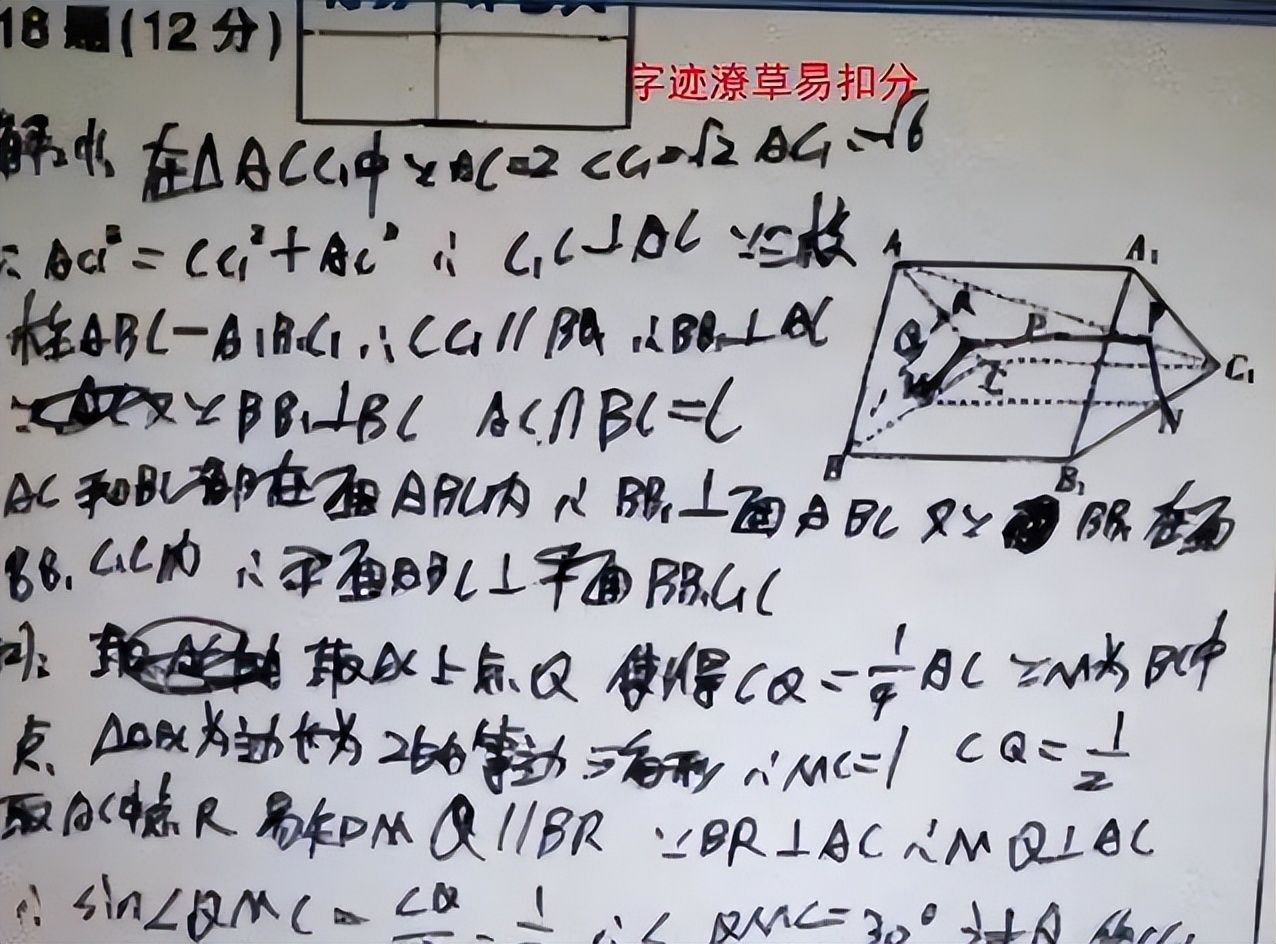 18题(12分)
字迹潦草易扣分
解: 在△ACC₁中 ∵AC=2 CC₁=√2 AC₁=√6
∴AC₁²=CC₁²+AC² ∴C₁C⊥AC ∵三棱
柱ABC-A₁B₁C₁ ∴CC₁//BB₁ ∴BB₁⊥AC
又∵BB₁⊥BC AC∩BC=C
AC和BC都在面ABC内 ∴BB₁⊥面ABC 又∵BB₁在面
BB₁C₁C内 ∴平面ABC⊥平面BB₁C₁C
取AC上点Q 使得CQ=1/4AC ∵M为BC中
点 △ABC为边长为2的等边三角形 ∴MC=1 CQ=1/2
取AC中点R 易知MQ//BR ∵BR⊥AC ∴MQ⊥AC
∴sin∠QMC=CQ = 1 ∴∠QMC=30°
A A₁
R P P
Q
M C C₁
N
B B₁